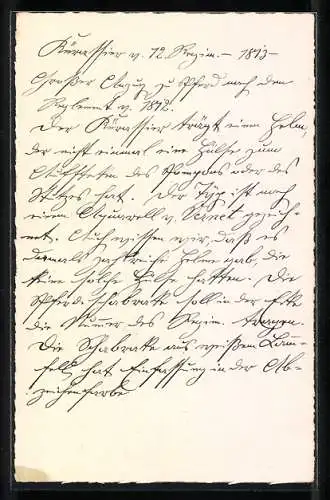 Kürassier v. 12. Regim. - 1813 -
Großer Anzug zu Pferd nach dem
Reglement v. 1812.
Der Kürassier trägt einen Helm,
der nicht einmal eine Hülse zum
Aufstecken des Pompons oder des
Stutzes hat. Der Typ ist nach
einem Aquarell v. Vernet gezeich-
net. Auch wissen wir, daß es
damals zahlreiche Helme gab, die
keine solche Hülse hatten. Die
Pferdeschabracke soll in der Ecke
die Nummer des Regim. tragen.
Die Schabracke aus weißem Lam-
fell, hat Einfassung in der Ab-
zeichenfarbe